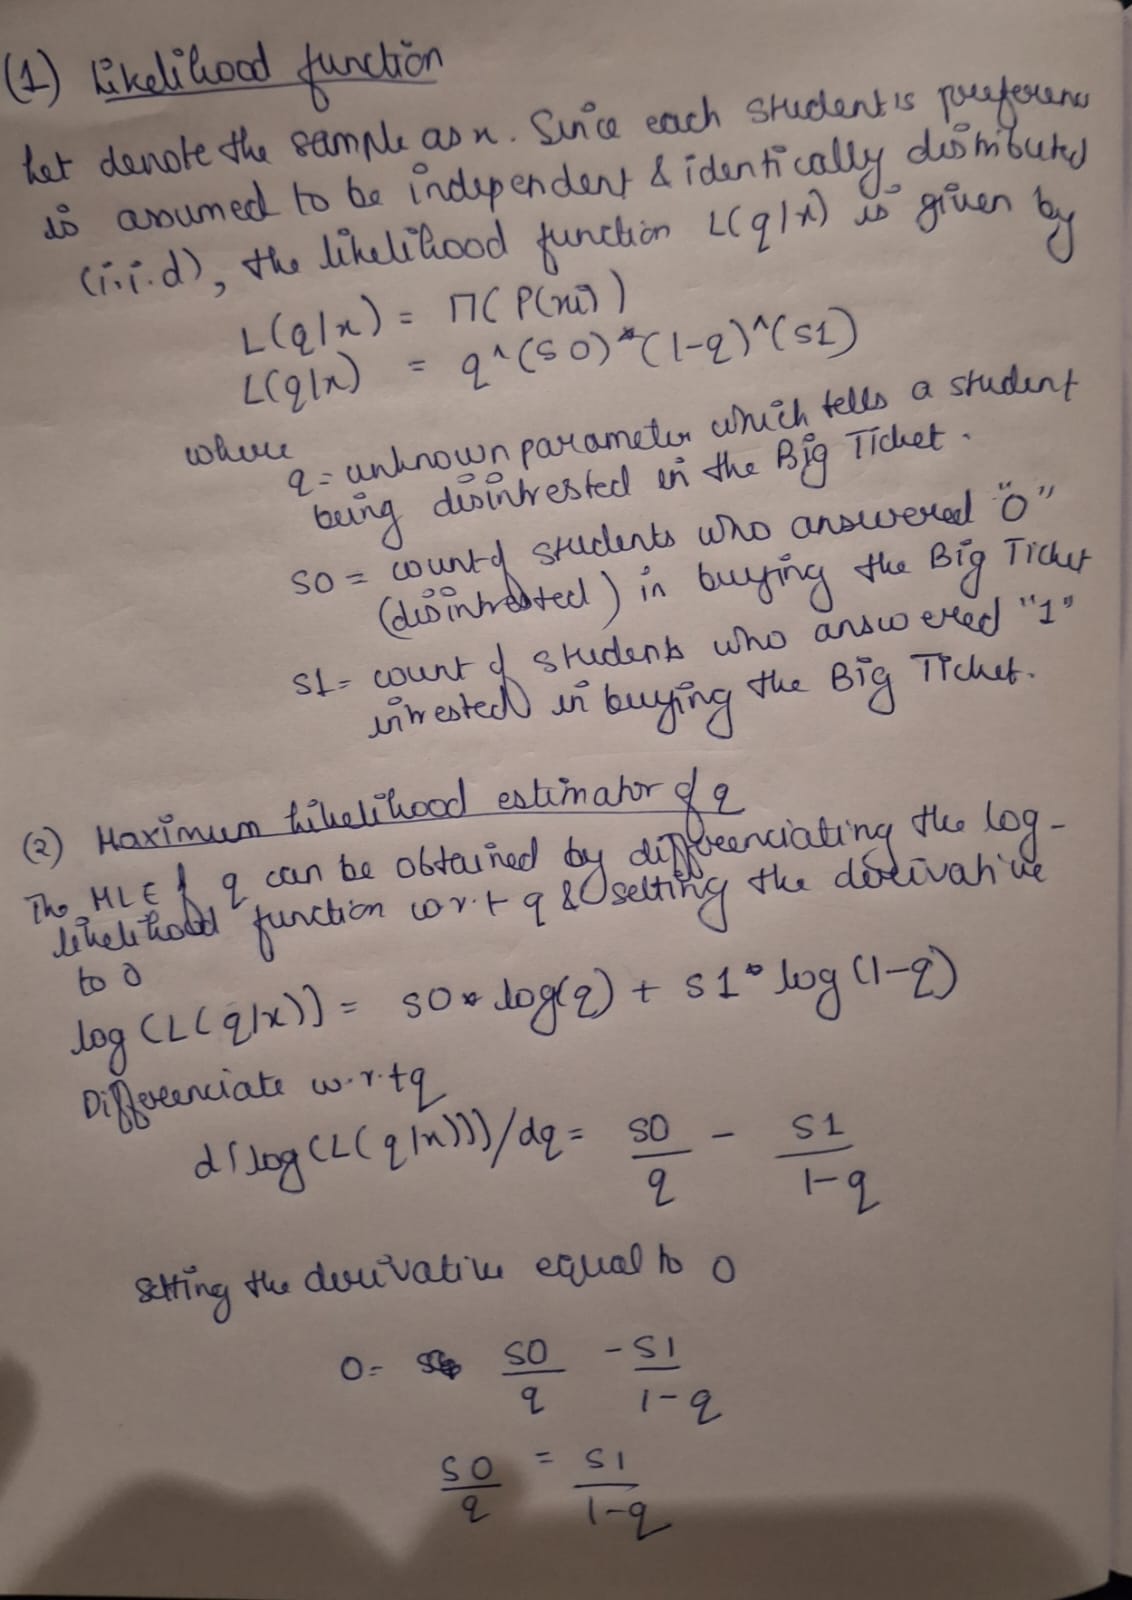 (1) Likelihood function
Let denote the sample as x. Since each student is preference
is assumed to be independent & identically distributed
(i.i.d), the likelihood function L(q|x) is given by
L(q|x) = Π( P(xi) )
L(q|x) = q^(S0)*(1-q)^(S1)
where
q = unknown parameter which tells a student
being disintrested in the Big Ticket.
S0 = count of students who answered "0"
(disintrested) in buying the Big Ticket
S1 = count of students who answered "1"
intrested in buying the Big Ticket.
(2) Maximum Likelihood estimator of q
The MLE of q can be obtained by differenciating the log-
likelihood function w.r.t q & setting the derivative
to 0
log (L(q|x)) = S0 * log(q) + S1 * log (1-q)
Differenciate w.r.t q
d(log(L(q|x)))/dq = S0/q - S1/1-q
Setting the derivative equal to 0
0 = S0/q - S1/1-q
S0/q = S1/1-q